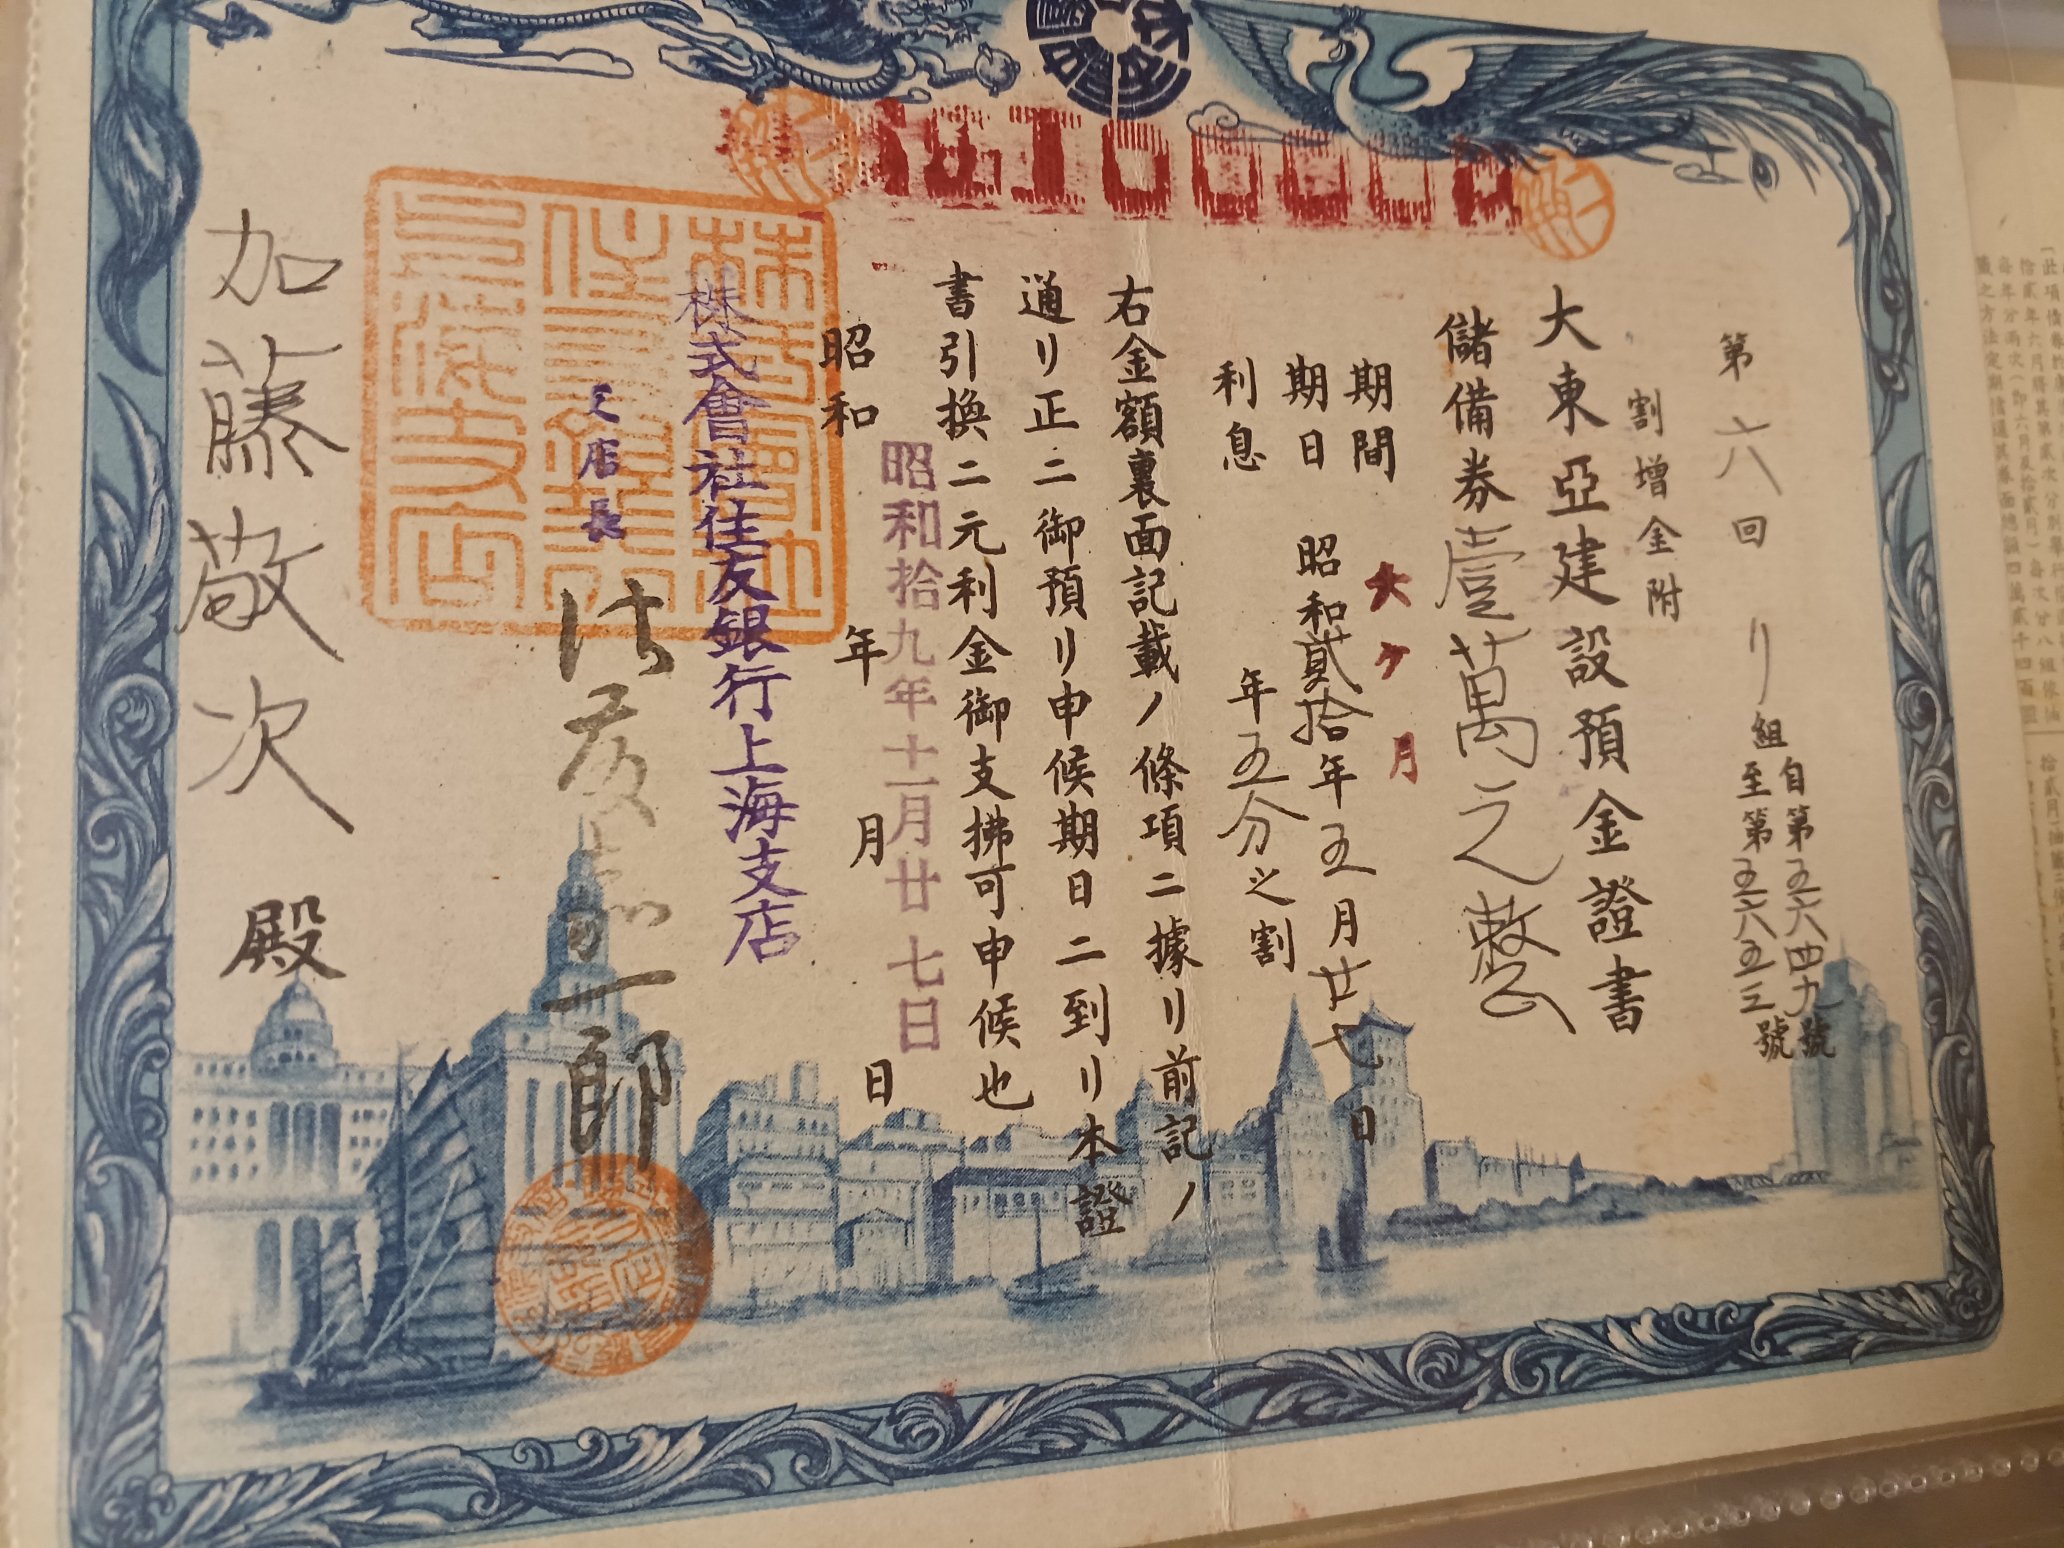 第六回 リ組 自第五六四九號
至第五六五三號
割増金附
大東亞建設預金證書
儲備券壹萬之整
期間 六ケ月
期日 昭和貳拾年五月廿七日
利息 年五分之割
右金額裏面記載ノ條項ニ據リ前記ノ
通リ正ニ御預リ申候期日ニ到リ本證
書引換ニ元利金御支拂可申候也
昭和拾九年十一月廿七日
昭和 年 月 日
株式會社住友銀行上海支店
支店長
株式會社
住友銀行
上海支店
加藤敬次 殿